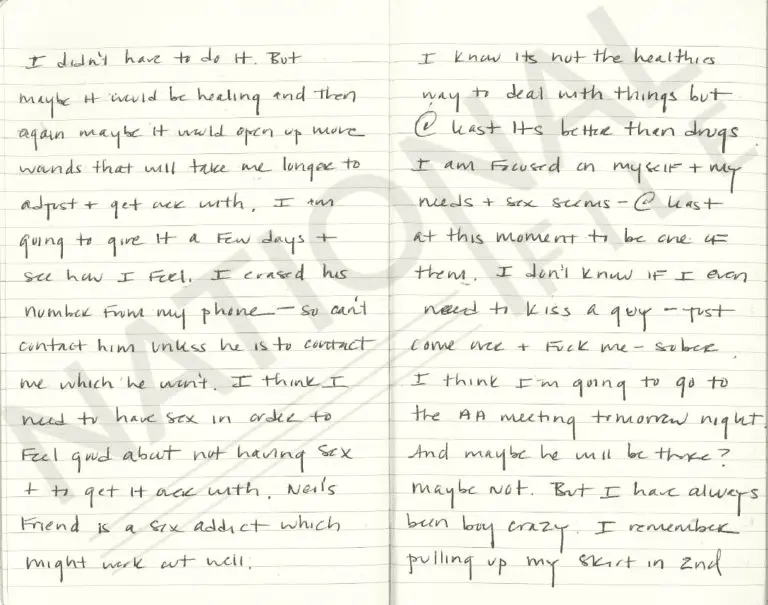 I didn't have to do it. But
maybe it would be healing and then
again maybe it would open up more
wounds that will take me longer to
adjust + get over with. I am
going to give it a few days +
see how I feel. I erased his
number from my phone — so can't
contact him unless he is to contact
me which he won't. I think I
need to have sex in order to
feel good about not having sex
+ to get it over with. Neil's
friend is a sex addict which
might work out well.
I know its not the healthies
way to deal with things but
@ least its better than drugs
I am focused on myself + my
needs + sex seems - @ least
at this moment to be one of
them. I don't know if I even
need to kiss a guy - just
come over + fuck me - sober.
I think I'm going to go to
the AA meeting tomorrow night.
And maybe he will be there?
maybe not. But I have always
been boy crazy. I remember
pulling up my skirt in 2nd
NATIONAL
FILE